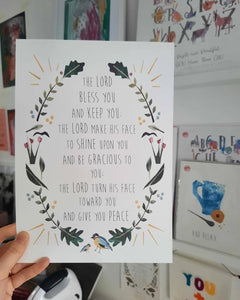 THE LORD
BLESS YOU
AND KEEP YOU;
THE LORD MAKE HIS FACE
TO SHINE UPON YOU
AND BE GRACIOUS TO
YOU;
THE LORD TURN HIS FACE
TOWARD YOU
AND GIVE YOU PEACE
YOU